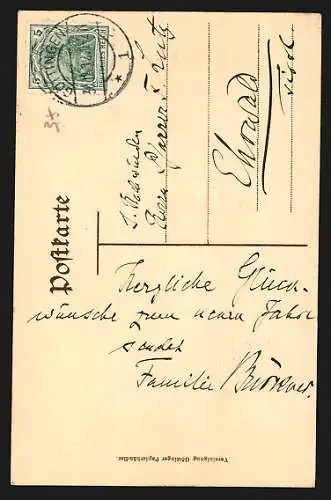 GÖTTINGEN
1
5
5
37
Postkarte
S. Hochwürden
Herrn Pfarrer
Ehrwald
Tirol
Herzliche Glück-
wünsche zum neuen Jahre
sendet
Familie
Vereinigung Göttinger Papierhändler.